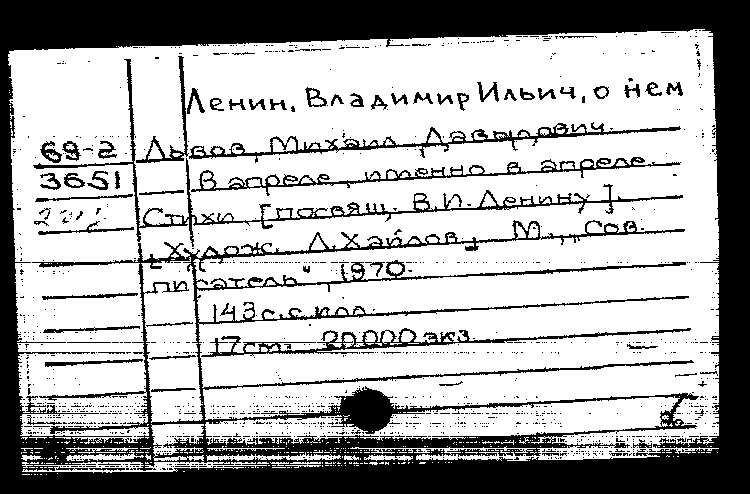 Ленин, Владимир Ильич, о нем
69-2 Львов, Михаил Давыдович.
3651 В апреле, именно в апреле.
Стихи. [посвящ. В.И. Ленину].
[Худож. Л. Хайлов]. М., „Сов.
писатель", 1970.
143 с. с илл.
17 см. 20 000 экз.